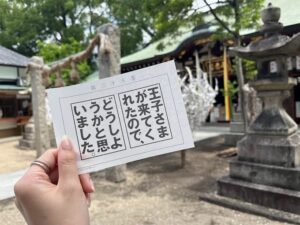 王子さま
が来てく
れたので、
どうしよ
うかと思
いました。